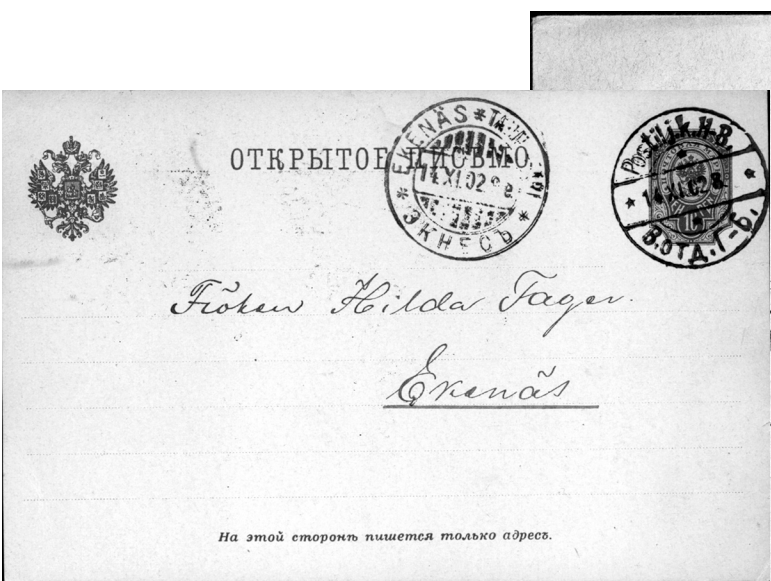 ОТКРЫТОЕ ПИСЬМО.
EKENÄS
14.XI.02
ЭКНЕСЪ
Postilj.k.H-B.
14.XI.02 8.
В.ОТД.Г-Б.
Fröken Hilda Fager.
Ekenäs
На этой сторонѣ пишется только адресъ.